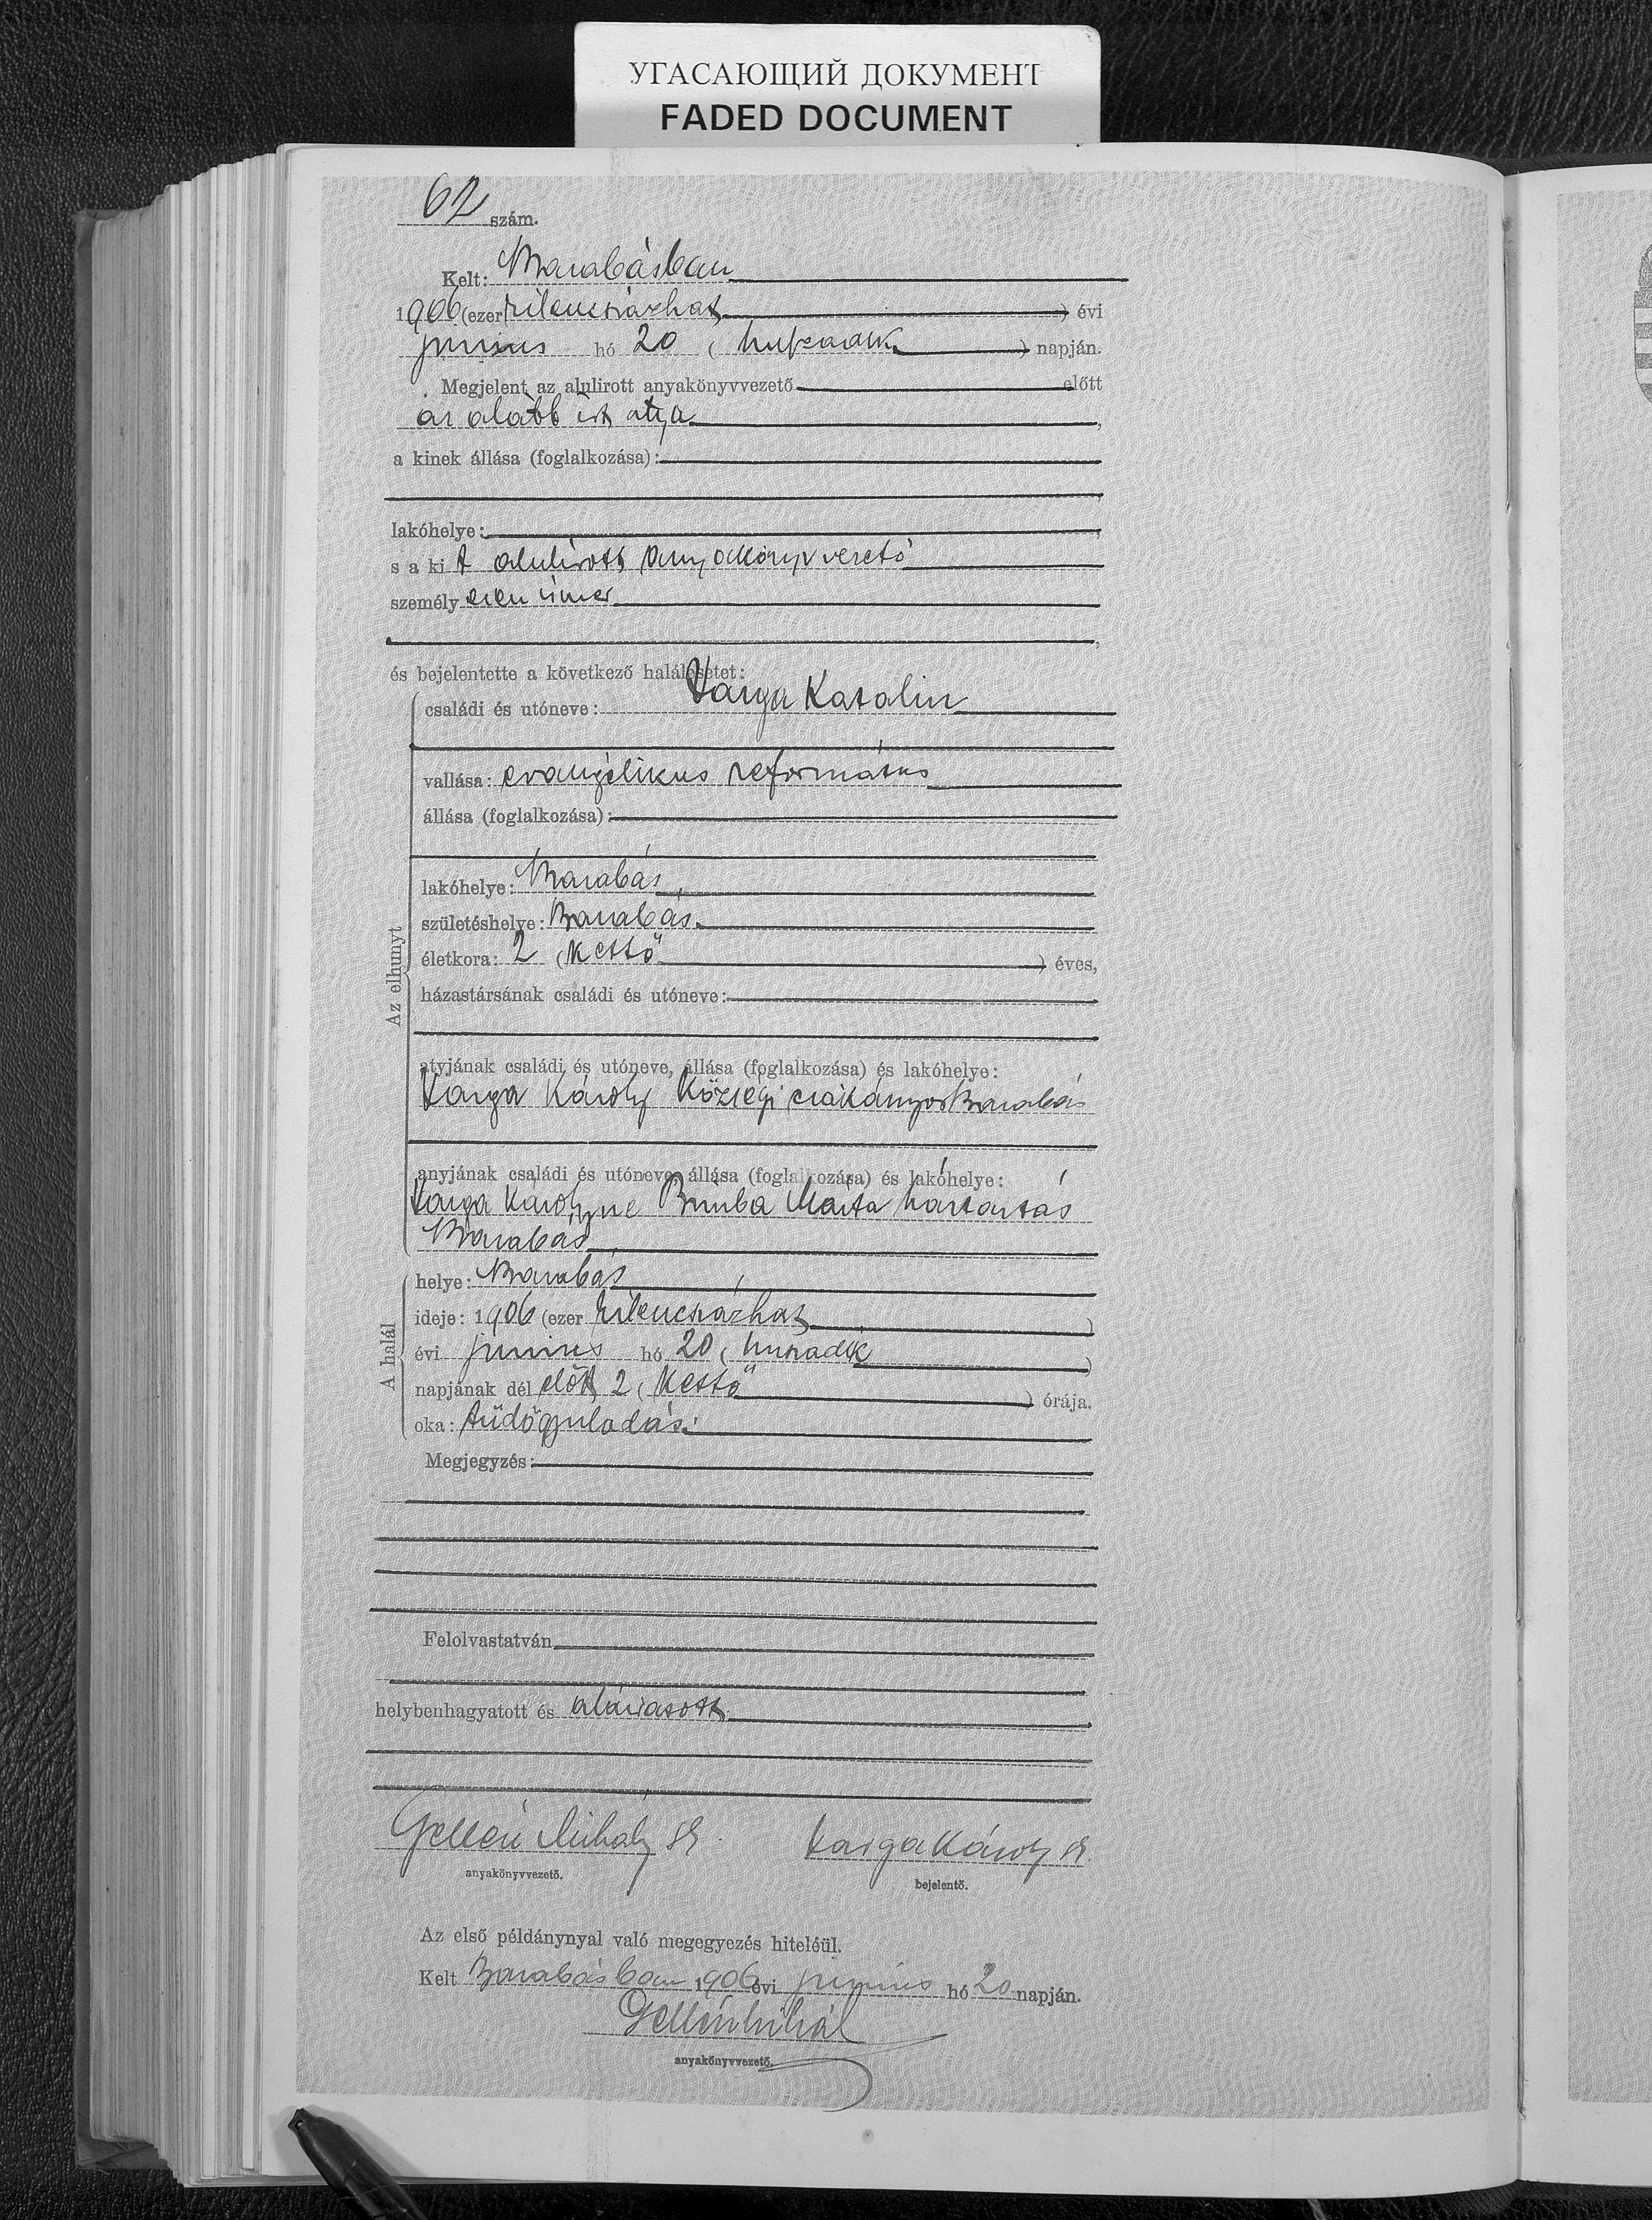 УГАСАЮЩИЙ ДОКУМЕНТ
FADED DOCUMENT
62 szám.
Kelt: Barabásban
1906 (ezer kilencszázhat) évi
junius hó 20 (huszadik) napján.
Megjelent az alulirott anyakönyvvezető előtt
az alább irt atya,
a kinek állása (foglalkozása):
lakóhelye:
s a kit alulirott anyakönyvvezető
személyesen ismer
és bejelentette a következő halálesetet:
Az elhunyt
családi és utóneve: Varga Katalin
vallása: evangelikus református
állása (foglalkozása):
lakóhelye: Barabás
születéshelye: Barabás
életkora: 2 (kettő) éves,
házastársának családi és utóneve:
atyjának családi és utóneve, állása (foglalkozása) és lakóhelye:
Varga Károly községi Barabás
anyjának családi és utóneve, állása (foglalkozása) és lakóhelye:
Varga Károlyné Bimba Márta háztartás
Barabás
A halál
helye: Barabás
ideje: 1906 (ezer kilencszázhat)
évi junius hó 20 (huszadik)
napjának dél előtt 2 (kettő) órája.
oka: tüdőgyuladás.
Megjegyzés:
Felolvastatván
helybenhagyatott és aláiratott
Gellén Mihály sk. Varga Károly sk.
anyakönyvvezető. bejelentő.
Az első példánynyal való megegyezés hiteléül.
Kelt Barabásban 1906 évi junius hó 20 napján.
Gellén Mihál
anyakönyvvezető.